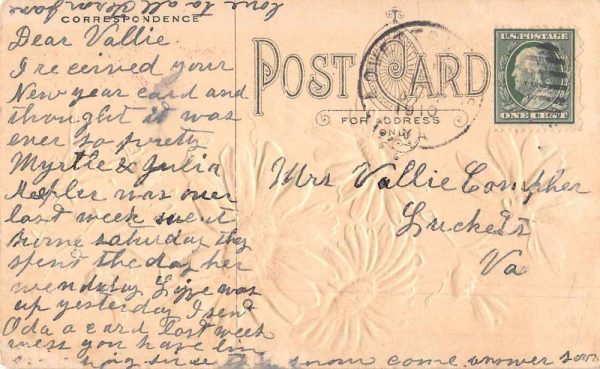 love to all
CORRESPONDENCE
Dear Vallie
I received your
New year card and
thought it was
ever so pretty
Myrtle & Julia
was over
last week went
home saturday they
spend the day her
wensday Lizze was
up yesterday I send
Oda a card last week
guess you have
since the snow come answer soon
POST CARD
FOR ADDRESS
ONLY
LOVETTS
1910
VA
U.S. POSTAGE
ONE CENT
Mrs Vallie Compher
Lucketts
Va